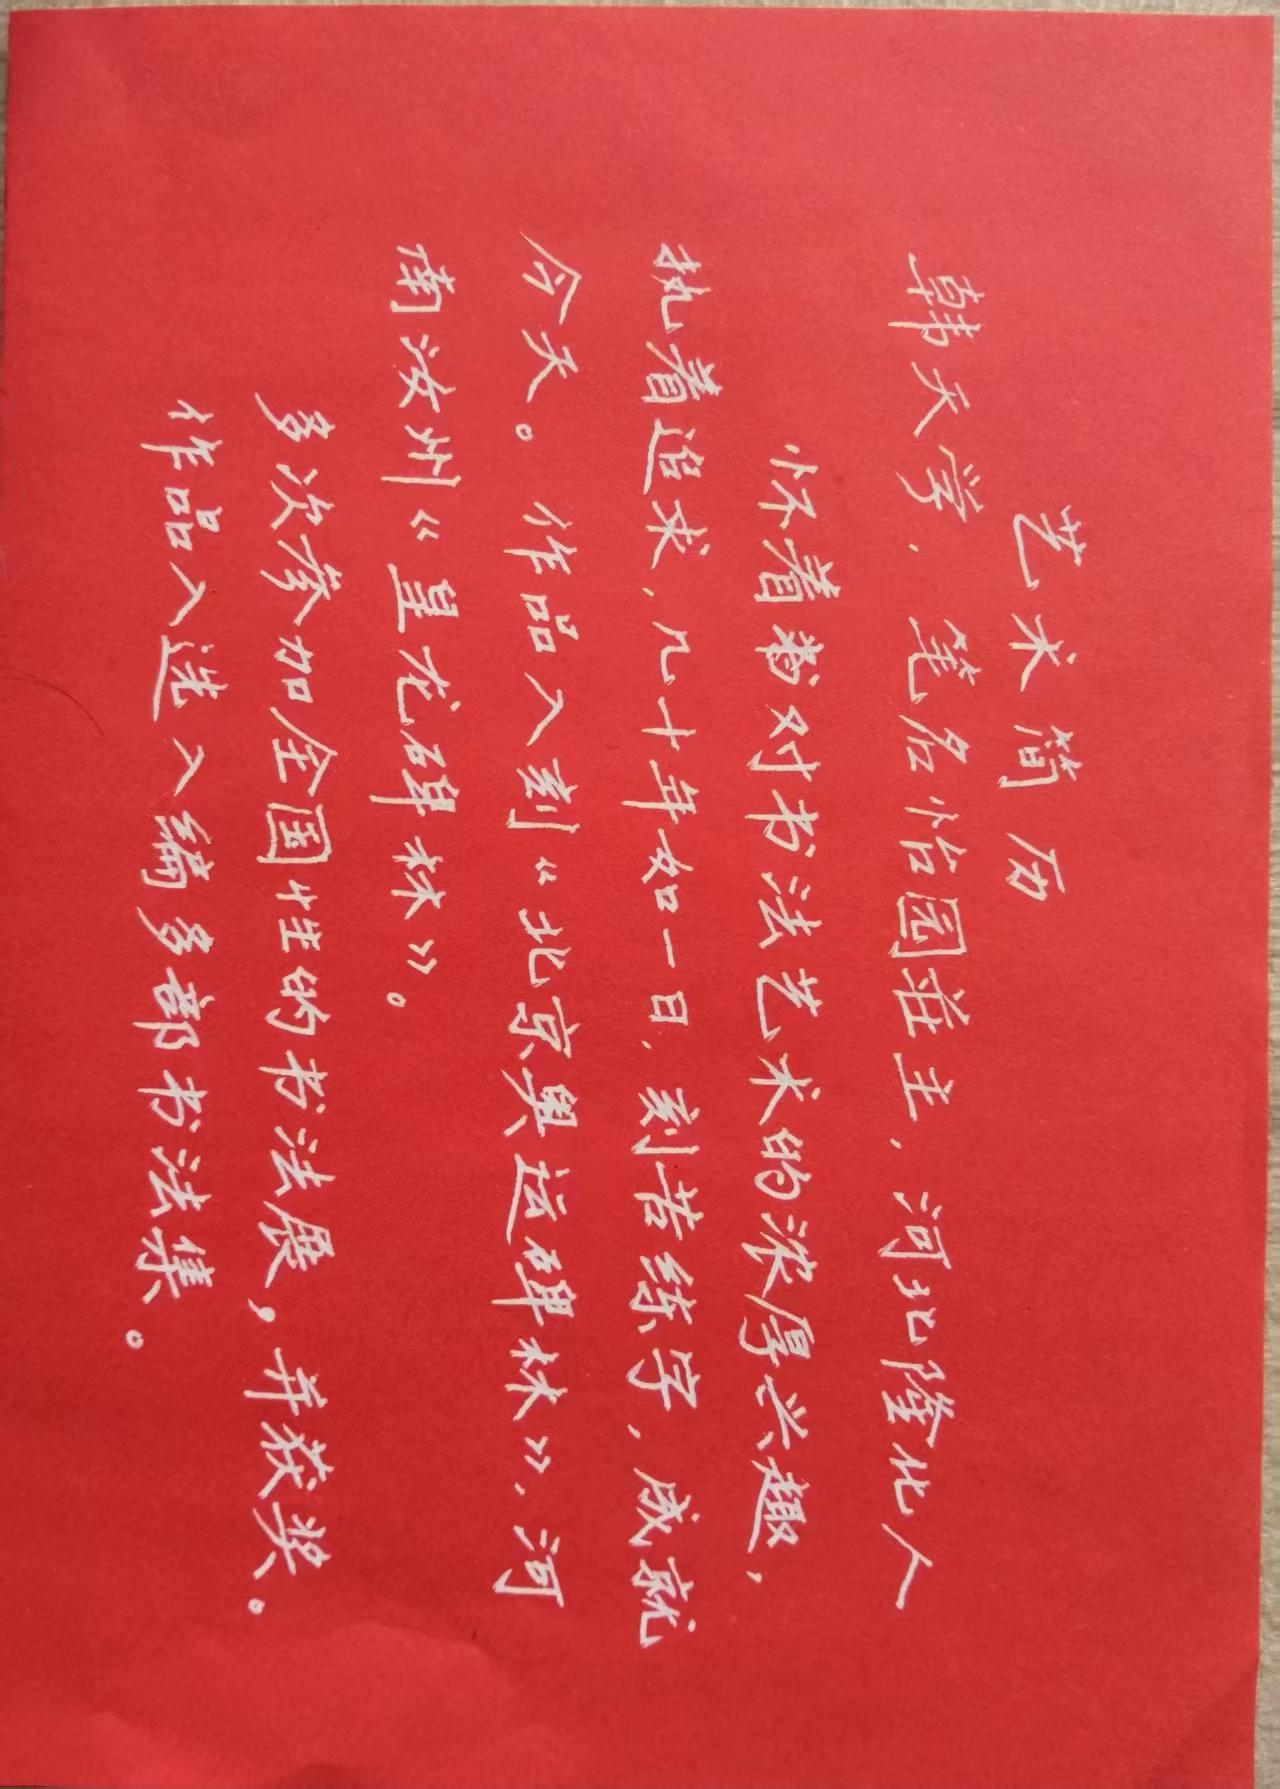 艺术简历
韩天学，笔名怡园庄主，河北隆化人
怀着对书法艺术的浓厚兴趣，
执着追求，几十年如一日，刻苦练字，成就
今天。作品入刻《北京奥运碑林》，河
南汝州《皇龙碑林》。
多次参加全国性的书法展，并获奖。
作品入选入编多部书法集。